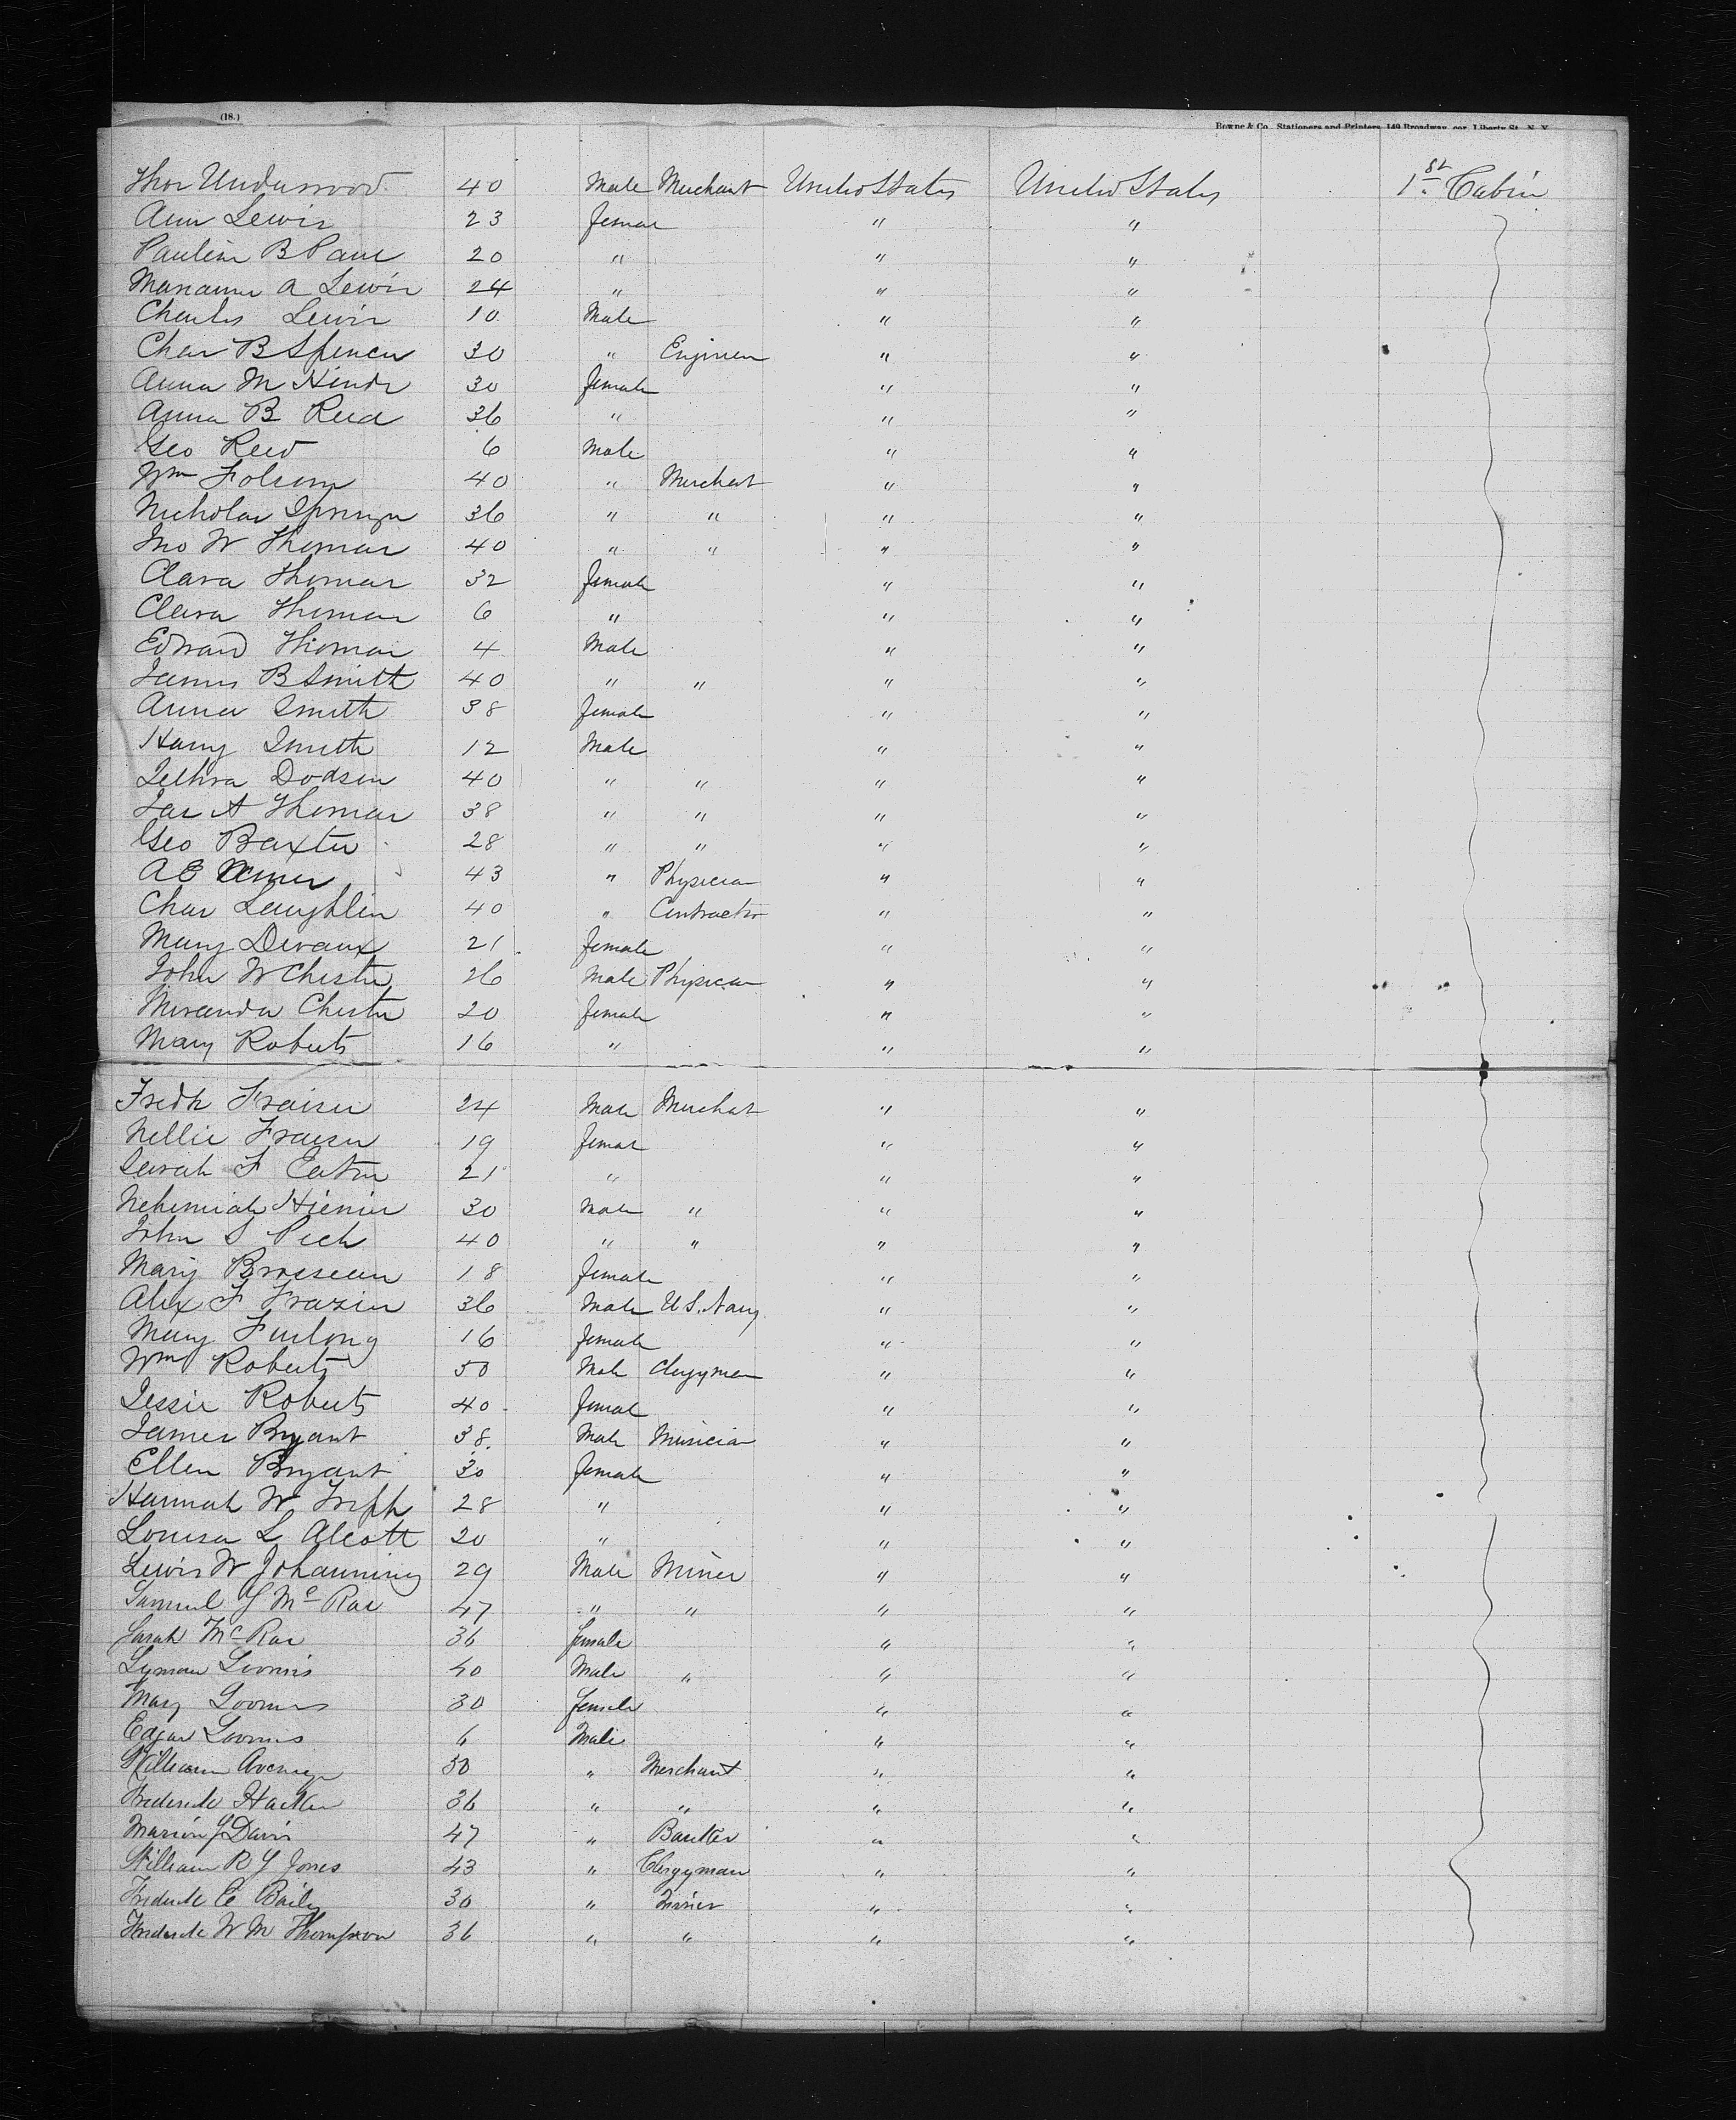 (18.)
Bowne & Co., Stationers and Printers, 149 Broadway, cor. Liberty St., N. Y.
Thos Underwood 40 Male Merchant United States United States 1st Cabin
Ann Lewis 23 female " "
Pauline B Paul 20 " " "
Marianna A Lewis 24 " " "
Charles Lewis 10 Male " "
Chas B Spencer 30 " Engineer " "
Anna M Hinds 30 female " "
Anna B Reed 36 " " "
Geo Reed 6 Male " "
Wm Folsom 40 " Merchant " "
Nicholas 36 " " " "
Jno W Thomas 40 " " " "
Clara Thomas 32 female " "
Clara Thomas 6 " " "
Edward Thomas 4 Male " "
James B Smith 40 " " " "
Anna Smith 38 female " "
Harry Smith 12 Male " "
Dodson 40 " " " "
Jas A Thomas 38 " " " "
Geo Baxter 28 " " " "
A E 43 " Physician " "
Chas Laughlin 40 " Contractor " "
Mary Devaux 21 female " "
John W Chester 26 Male Physician " "
Miranda Chester 20 female " "
Mary Roberts 16 " " "
Fredk Fraiser 24 Male Merchant " "
Nellie Fraiser 19 female " "
Sarah F Eaton 21 " " "
Nehemiah 30 Male " " "
John S Peck 40 " " " "
Mary Brosseau 18 female " "
Alex F Frazier 36 Male U.S. Navy " "
Mary Furlong 16 female " "
Wm Roberts 50 Male Clergyman " "
Jessie Roberts 40 female " "
James Bryant 38 Male Musician " "
Ellen Bryant 30 female " "
Hannah W Tripp 28 " " "
Louisa L Alcott 20 " " "
Lewis W Johanning 29 Male Miner " "
Samuel Y McRae 47 " " " "
Sarah McRae 36 female " "
Lyman Loomis 40 Male " " "
Mary Loomis 30 female " "
Edgar Loomis 6 Male " "
William 30 " Merchant " "
Frederick 36 " " " "
Marion J Davis 47 " Banker " "
William R Y Jones 43 " Clergyman " "
Frederick E Baily 30 " " "
Frederick W M Thompson 36 " " " "